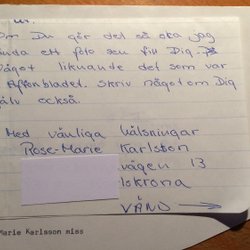 ur.
Om Du gör det så ska jag
ända ett foto sen till Dig.
Något liknande det som var
Aftonbladet. Skriv något om Dig
älv också.
Med vänliga hälsningar
Rose-Marie Karlsson
vägen 13
lskrona
VÄND →
Marie Karlsson miss